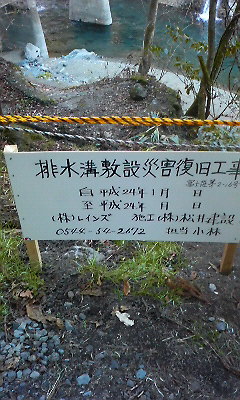 排水溝敷設災害復旧工事
自 平成24年1月 日
至 平成24年 月 日
(株)レインズ 施工(株)松井建設
0544-54-2672 担当 小林